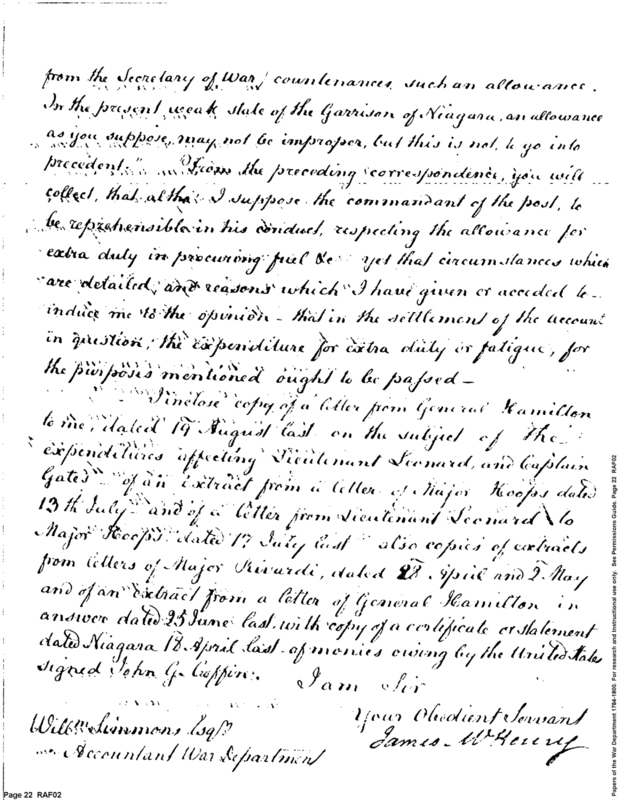 from the Secretary of War, countenances such an allowance.
In the present weak state of the Garrison of Niagara, an allowance
as you suppose, may not be improper, but this is not to go into
precedent." From the preceding correspondence, you will
collect, that altho' I suppose the commandant of the post, to
be reprehensible in his conduct, respecting the allowance for
extra duty in procuring fuel &c yet that circumstances which
are detailed, and reasons which I have given or acceded to
induce me to the opinion - that in the settlement of the account
in question, the expenditure for extra duty or fatigue, for
the purposes mentioned ought to be passed -
I inclose copy of a letter from General Hamilton
to me, dated 19 August last on the subject of the
expenditures affecting Lieutenant Leonard, and Captain
Gates - of an extract from a letter of Major Hoops dated
13th July and of a letter from Lieutenant Leonard to
Major Hoops dated 17 July last - also copies of extracts
from letters of Major Rivardi, dated 28 April and 2 May
and of an extract from a letter of General Hamilton in
answer dated 25 June last, with copy of a certificate or statement
dated Niagara 18 April last of monies owing by the United States
signed John G. Coffin.
I am Sir
Your Obedient Servant
James McHenry
Willm Simmons Esqr
Accountant War Department
Page 22 RAF02
Papers of the War Department 1784-1800. For research and instructional use only. See Permissions Guide. Page 22 RAF02